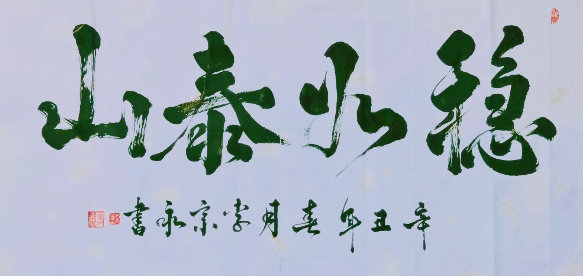 稳如泰山
辛丑年春月李宗永書